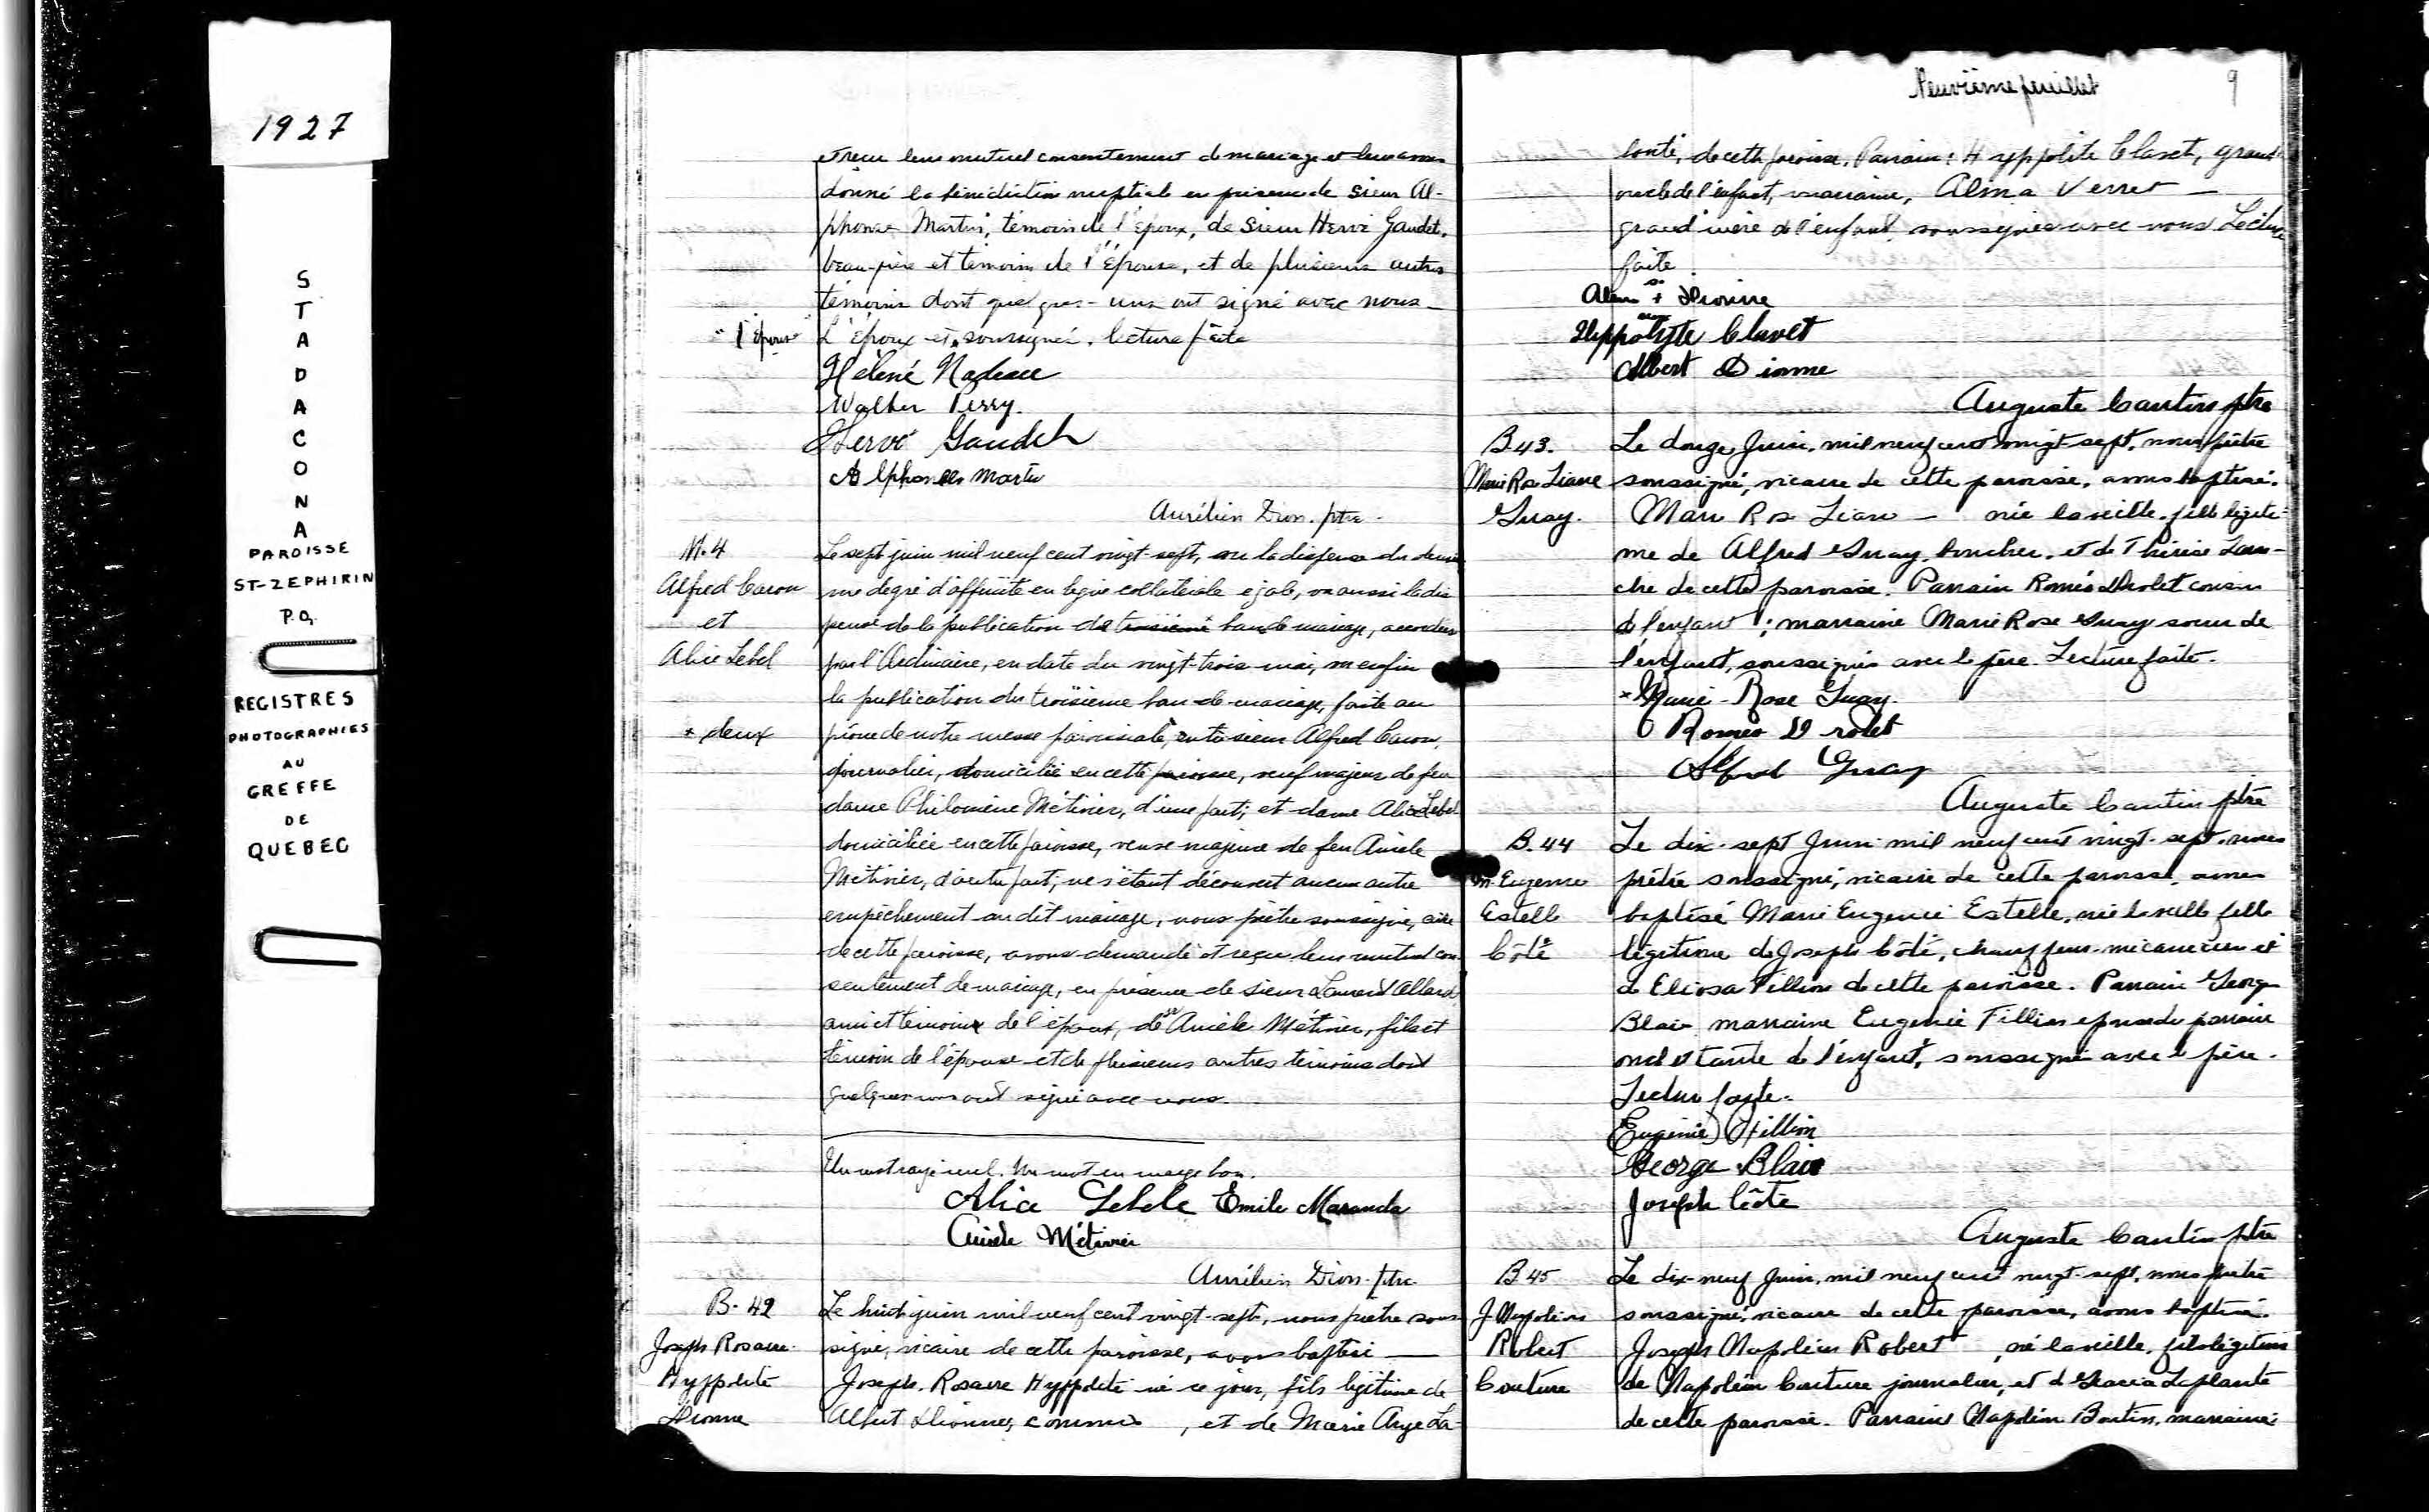 1927
STADACONA
PAROISSE
ST-ZEPHIRIN
P.Q.
REGISTRES
PHOTOGRAPHIES
AU
GREFFE
DE
QUEBEC
et reçu leur mutuel consentement de mariage et leur avons
donné la bénédiction nuptiale en présence de sieur Al-
phonse Martin, témoin de l'époux, de sieur Hervé Gaudet,
beau-père et témoin de l'Épouse, et de plusieurs autres
témoins dont quelques-uns ont signé avec nous
"l'épouse" L'Époux et soussignés. lecture faite
Hélène Nadeau
Walter Perry.
Hervé Gaudet
Alphonse Martin
Aurélien Dion. ptre.
M. 4
Alfred Caron
et
Alice Lebel
* deux
Le sept juin mil neuf cent vingt-sept, vu la dispense du deuxiè
me degré d'affinité en ligne collatérale égale, vu aussi la dis
pense de la publication de troisième * bans de mariage, accordées
par l'Ordinaire, en date du vingt-trois mai, vu enfin
la publication du troisième ban de mariage, faite au
prône de notre messe paroissiale, entre sieur Alfred Caron,
journalier, domicilié en cette paroisse, veuf majeur de feu
dame Philomène Métivier, d'une part; et dame Alice Lebel
domiciliée en cette paroisse, veuve majeure de feu
Métivier, d'autre part; ne s'étant découvert aucun autre
empêchement au dit mariage, nous prêtre soussigné, curé
de cette paroisse, avons demandé et reçu leur mutuel con-
sentement de mariage, en présence de sieur Allard,
ami et témoin de l'époux, de sr Métivier, fils et
témoin de l'épouse et de plusieurs autres témoins dont
quelques uns ont signé avec nous.
Un mot rayé nul. Un mot en marge bon.
Alice Lebel Emile Maranda
Métivier
Aurélien Dion. ptre
B- 42
Joseph Rosaire
Hyppolite
Dionne
Le huit juin mil neuf cent vingt-sept, nous prêtre sous
signé, vicaire de cette paroisse, avons baptisé
Joseph. Rosaire Hyppolite né ce jour, fils légitime de
Albert Dionne, commis, et de Marie Ange La-
Neuvième feuillet 9
de cette paroisse, Parrain: Hyppolite Clavet, grand
oncle de l'enfant, marraine, Alma Verret
grand'mère de l'enfant soussignés avec nous Lecture
faite.
Dionne
Hyppolyte Clavet
Albert Dionne
Auguste Cantin ptre
B 43.
Marie Rose Liane
Guay.
Le douze Juin, mil neuf cent vingt-sept, nous prêtre
soussigné, vicaire de cette paroisse, avons baptisé.
Marie Rose Liane née la veille, fille légiti-
me de Alfred Guay, boucher, et de Thérèse
de cette paroisse. Parrain Roméo Drolet cousin
de l'enfant; marraine Marie Rose Guay soeur de
l'enfant, soussignés avec le père. Lecture faite.
Marie-Rose Guay.
Roméo Drolet
Alfred Guay
Auguste Cantin ptre
B. 44
M. Eugenie
Estelle
Côté
Le dix-sept Juin mil neuf cent vingt-sept, nous
prêtre soussigné, vicaire de cette paroisse, avons
baptisé Marie Eugenie Estelle, née la veille fille
légitime de Joseph Côté, chauffeur-mécanicien et
de Eliosa Fillion de cette paroisse. Parrain George
Blais marraine Eugenie Fillion épouse du parrain
oncle et tante de l'enfant, soussignés avec le père.
Lecture faite.
Eugénie Fillion
George Blais
Joseph Côté
Auguste Cantin ptre
B 45
J. Napoléon
Robert
Couture
Le dix-neuf Juin, mil neuf cent vingt-sept, nous prêtre
soussigné, vicaire de cette paroisse, avons baptisé.
Joseph Napoléon Robert, né la veille, fils légitime
de Napoléon Couture journalier, et de Laplante
de cette paroisse. Parrain Napoléon Boutin, marraine